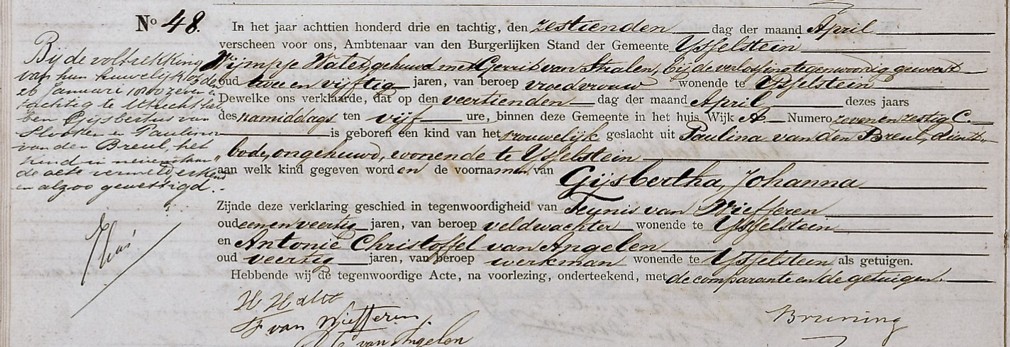 No 48.
In het jaar achttien honderd drie en tachtig, den zestienden dag der maand April
verscheen voor ons, Ambtenaar van den Burgerlijken Stand der Gemeente IJsselstein
Wimpje Wates gehuwd met Gerrit van Stralen, bij de verlossing tegenwoordig geweest
oud twee en vijftig jaren, van beroep vroedvrouw wonende te IJsselstein
Dewelke ons verklaarde, dat op den veertienden dag der maand April dezes jaars
des namiddags ten vijf ure, binnen deze Gemeente in het huis Wijk A Numero zeven en zestig C
is geboren een kind van het vrouwelijk geslacht uit Paulina van den Breul, dienst-
bode, ongehuwd, wonende te IJsselstein
aan welk kind gegeven worden de voornamen van
Gijsbertha, Johanna
Zijnde deze verklaring geschied in tegenwoordigheid van Teunis van Wiefferen
oud een en veertig jaren, van beroep veldwachter wonende te IJsselstein
en Antonie Christoffel van Angelen
oud veertig jaren, van beroep werkman wonende te IJsselstein als getuigen.
Hebbende wij de tegenwoordige Acte, na voorlezing, onderteekend, met de comparante en de getuigen.
van Wiefferen
van Angelen
Bruning
Bij de voltrekking
van hun huwelijk op den
26 Januari
tachtig te Utrecht
ben Gijsbertus van
en Paulina
van den Breul, het
kind in nevenstaan
de acte vermeld erkend
en alzoo gewettigd.